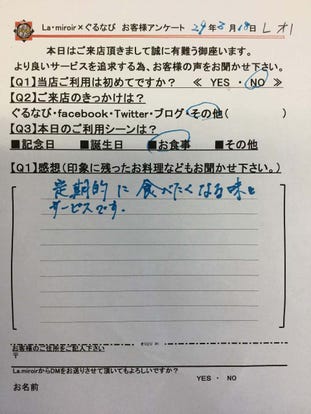 La・miroir×ぐるなび お客様アンケート 29年3月18日
本日はご来店頂きまして誠に有難う御座います。
より良いサービスを追求する為、お客様の声をお聞かせ下さい。
【Q1】当店ご利用は初めてですか? 《 YES ・ NO 》
【Q2】ご来店のきっかけは?
ぐるなび・facebook・Twitter・ブログ・その他( )
【Q3】本日のご利用シーンは?
■記念日 ■誕生日 ■お食事 ■その他
【Q1】感想(印象に残ったお料理などもお聞かせ下さい。)
定期的に食べたくなる味と
サービスです.
お客様のご住所をご記入下さい
〒
La.miroirからDMをお送りさせて頂いてもよろしいですか? YES ・ NO
お名前